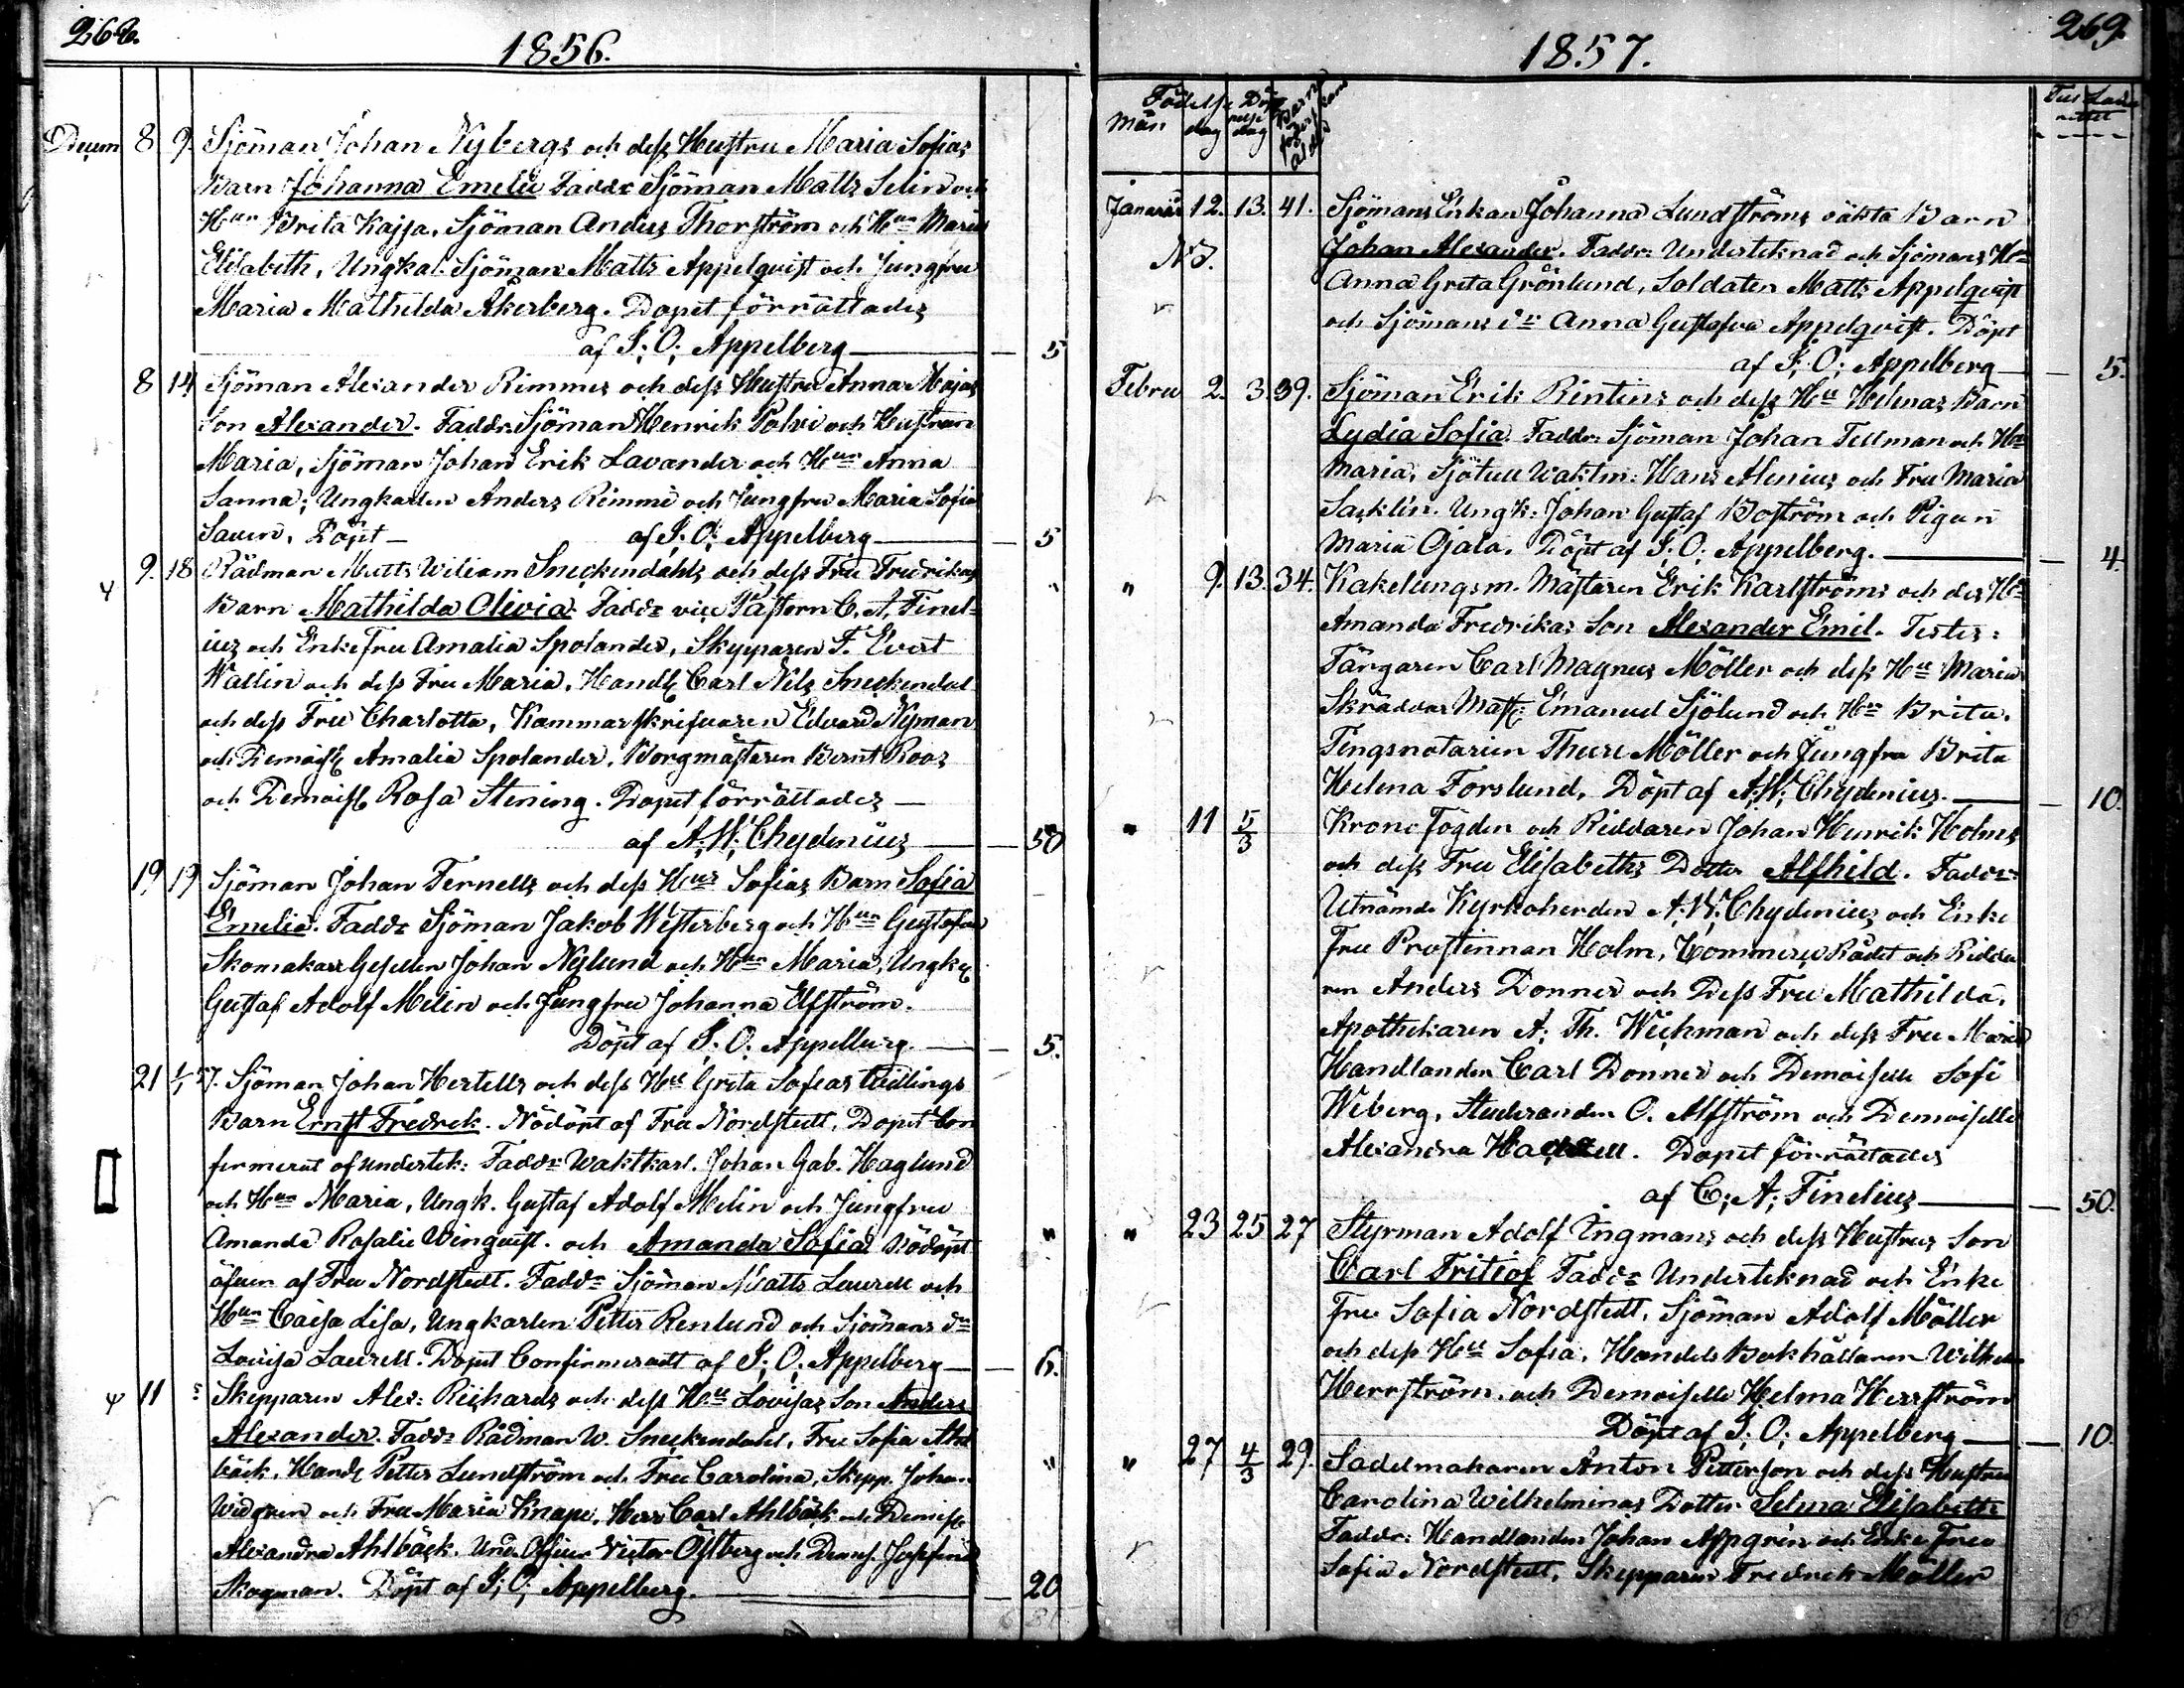 268.
1856.
Decem 8 9. Sjöman Johan Nybergs och dess Hustru Maria Sofias
Barn Johanna Emelie Faddr Sjöman Matts Selin och
Hun Brita Kajsa, Sjöman Anders Thorström och Hun Maria
Elisabeth, Ungkal. Sjöman Matts Appelqvist och Jungfru
Maria Mathilda Åkerberg. Dopet förrättades
af J. O. Appelberg — 5
8 14 Sjöman Alexander Rimmis och dess Hustru Anna Majas
Son Alexander. Faddr Sjöman Henrik Polvi och Hustrun
Maria, Sjöman Johan Erik Lavander och Hun Anna
Sanna; Ungkarlen Anders Rimmi och Jungfru Maria Sofia
Sauen. Döpt — af J. O. Appelberg — 5
9. 18 Rådman Matts Wiliam Sneckendahls och dess Fru Fredrikas
Barn Mathilda Olivia. Faddr vice Pastorn C. A. Finel-
ius och Enkefru Amalia Spolander, Skepparen F. Evert
Wallin och dess Fru Maria, Handl Carl Nils Sneckendal
och dess Fru Charlotta, Kammarskrifvaren Edvard Nyman
och Demoisl Amalia Spolander, Borgmästaren Bernt Roos
och Demoisl Rosa Stening. Dopet förrättades —
af A. W. Chydenius — 50
19 19 Sjöman Johan Fernells och dess Hus Sofias Barn Sofia
Emelie. Faddr Sjöman Jakob Westerberg och Hun Gustafva
Skomakare Gesellen Johan Nylund och Hun Maria, Ungk
Gustaf Adolf Melin och Jungfru Johanna Elfström.
Döpt af J. O. Appelberg. — 5.
21 1/1 57. Sjöman Johan Hertells och dess Hu Greta Sofias tvillings
Barn Ernst Fredrek. Nödöpt af Fru Nordstedt, Dopet Con
firmerat af undertek: Faddr Waktkarl. Johan Gab. Haglund
och Hun Maria, Ungk. Gustaf Adolf Melin och Jungfru
Amanda Rosalie Winqvist. och Amanda Sofia Nödöpt
äfven af Fru Nordstedt. Faddr Sjöman Matts Laurell och
Hun Caisa Lisa, Ungkarlen Petter Renlund och Sjömans dn
Lovisa Laurell. Dopet Confirmeradt af J. O. Appelberg — 6.
11 Skepparen Alex: Reichards och dess Hu Lovisas Son Anders
Alexander. Faddr Rådman W. Sneckendahl, Fru Sofia Ahl
bäck, Handl Petter Lundström och Fru Carolina, Skepp. Johan
Widgren och Fru Maria Knape, Herr Carl Ahlbäck och Demoisl
Alexandra Ahlbäck. Und. Oficer Victor Östberg och Demois. Josefina
Skogman. Döpt af J. O. Appelberg. — 20
269.
1857.
Födelse Döp Barna
Mån dag dag
Januari 12. 13. 41. Sjömans Enkan Johanna Lundströms oäkta Barn
Johan Alexander. Faddr: Underteknad och Sjömans Hu
Anna Greta Grönlund, Soldaten Matts Appelqvist
och Sjömans dr Anna Gustafva Appelqvist. Döpt
af J. O. Appelberg — 5.
Febru 2. 3. 39. Sjöman Erik Rintins och dess Hu Helenas Barn
Lydia Sofia. Faddr: Sjöman Johan Tellman och Hu
Maria, Sjötull Waktm: Hans Alenius och Fru Maria
Sacklin. Ungk: Johan Gustaf Boström och Pigan
Maria Ojala. Döpt af J. O. Appelberg. — 4.
" 9. 13. 34. Kakelungsm. Mästaren Erik Karlströms och des Hu
Amanda Fredrikas Son Alexander Emil. Testes:
Färgaren Carl Magnus Möller och dess Hu Maria
Skräddar Mäst: Emanuel Sjölund och Hu Brita.
Tingsnotarien Thure Möller och Jungfru Brita
Helena Forslund, Döpt af A. W. Chydenius. — 10.
" 11 5/3 Krono Fogden och Riddaren Johan Henrik Holms
och dess Fru Elisabeths Dotter Alfhild. Faddr
Utnämde Kyrkoherden A. W. Chydenius och Enke
Fru Prostinnan Holm, Commerce Rådet och Ridda
ren Anders Donner och Dess Fru Mathilda,
Apothekaren A. Th. Wichman och dess Fru Maria
Handlanden Carl Donner och Demoiselle Sofi
Weberg, Studeranden O. Alfström och Demoiselle
Alexandra. Dopet förrättades
af C. A. Finelius — 50.
" 23 25 27 Styrman Adolf Ingmans och dess Hustrus Son
Carl Fritiof Faddr Underteknad och Enke
Fru Sofia Nordstedt, Sjöman Adolf Möller
och dess Hu Sofia, Handels Bokhållaren Wilhelm
Herrström, och Demoiselle Helma Herrström
Döpt af J. O. Appelberg — 10.
" 27 4/3 29. Sadelmakaren Anton Petterson och dess Hustru
Carolina Wilhelminas Dotter Selma Elisabeth
Faddr: Handlanden Johan Appgrén och Enke Fru
Sofia Nordstedt, Skepparen Fredrek Möller